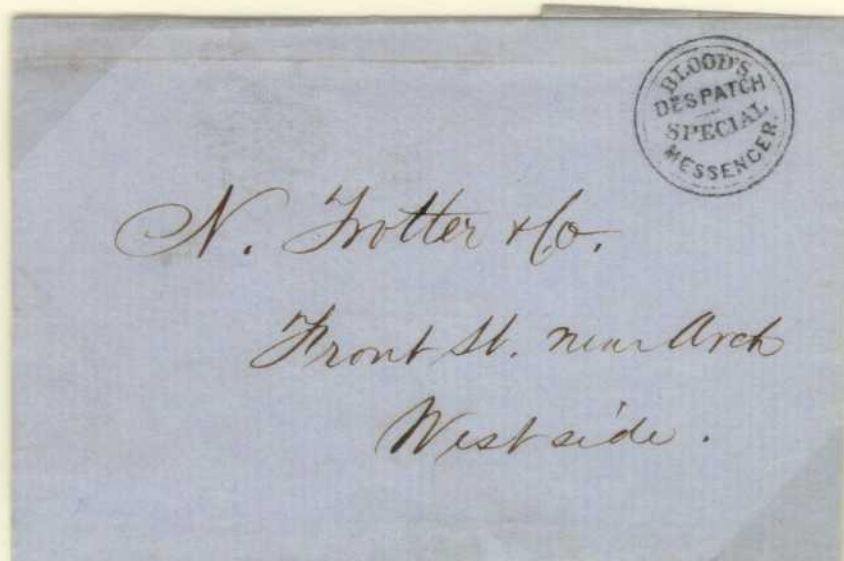 BLOOD'S
DESPATCH
SPECIAL
MESSENGER.
N. Trotter & Co.
Front St. near Arch
West side.